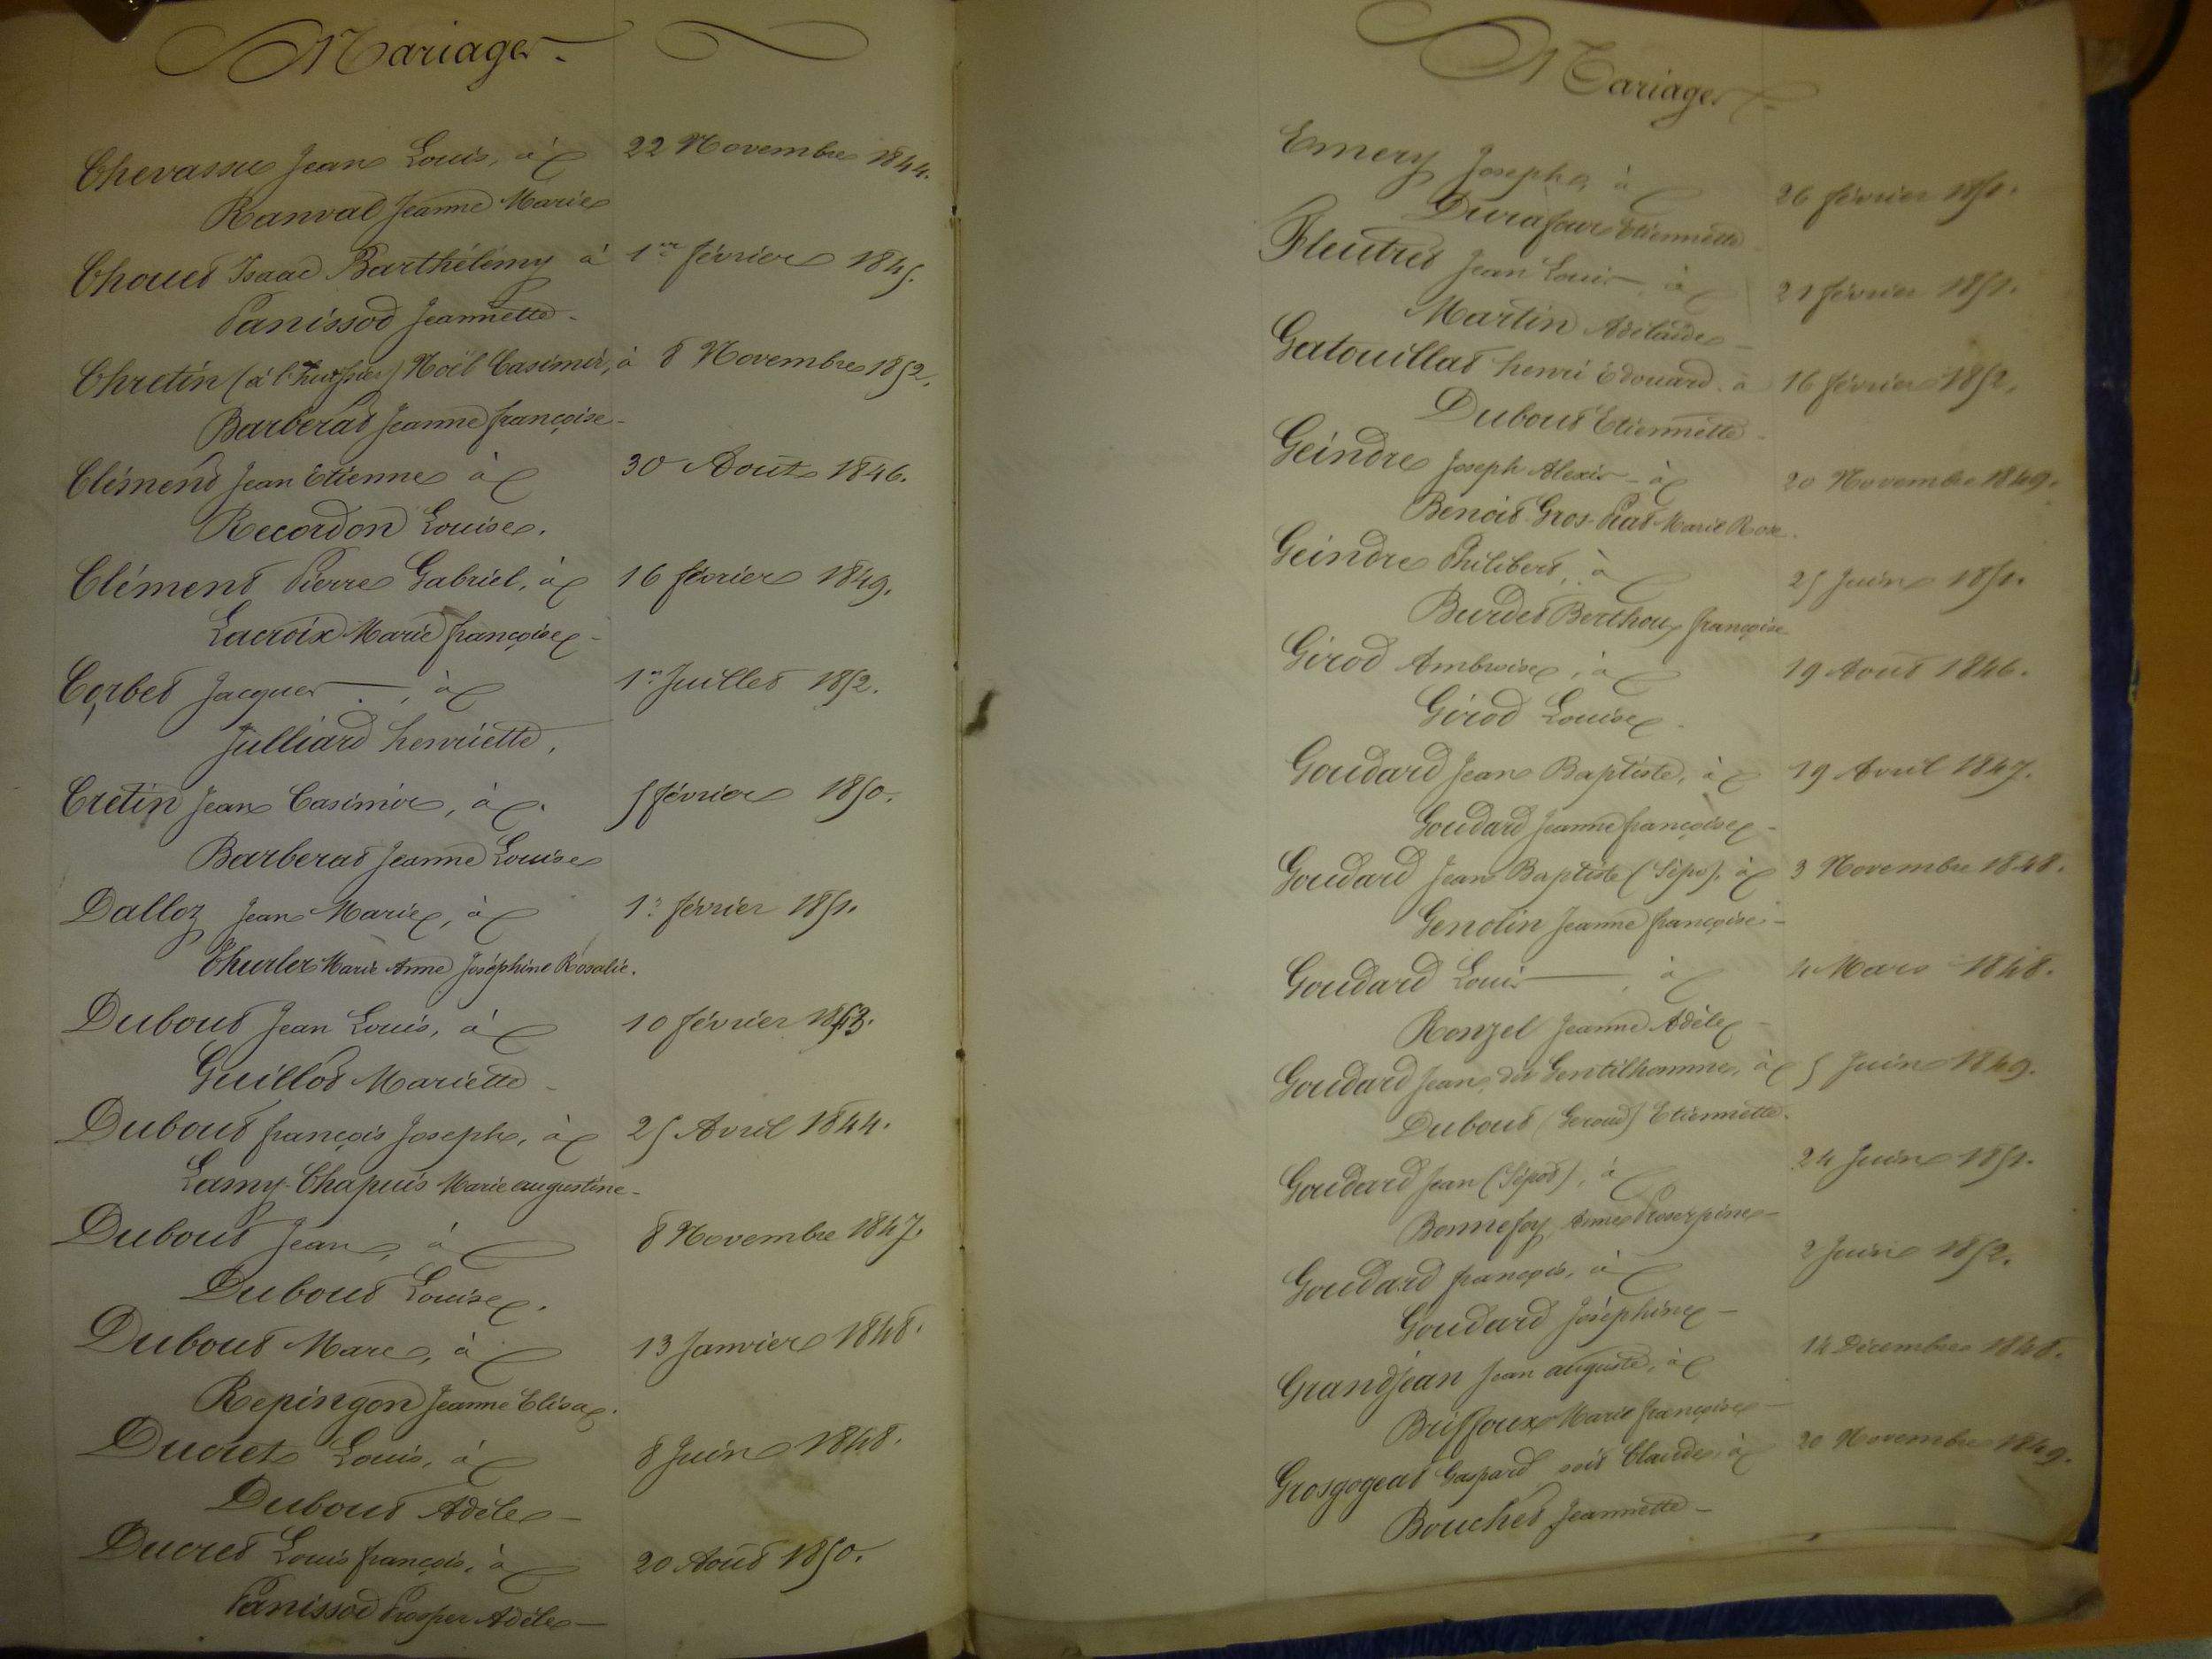 Mariages
Chevassu Jean Louis, à 22 Novembre 1844.
Ranval Jeanne Marie
Chouet Isaac Barthélémy à 1er février 1845.
Panissod Jeannette
Chretin (à l'huissier) Noël Casimir, à 8 Novembre 1852.
Barberat Jeanne françoise
Clément Jean Etienne à 30 Août 1846.
Recordon Louise.
Clément Pierre Gabriel, à 16 février 1849.
Lacroix Marie françoise
Corbet Jacques, à 1er Juillet 1852.
Julliard henriette,
Cretin Jean Casimir, à 5 février 1850.
Barberat Jeanne Louise
Dalloz Jean Marie, à 1er février 1851.
Thurler Marie Anne Joséphine Rosalie.
Dubout Jean Louis, à 10 février 1843.
Guillot Mariette
Dubout françois Joseph, à 25 Avril 1844.
Lamy-Chapuis Marie augustine
Dubout Jean, à 8 Novembre 1847.
Dubout Louise.
Dubout Marc, à 13 Janvier 1848.
Repingon Jeanne Elisa.
Ducret Louis, à 8 Juin 1848.
Dubout Adèle
Ducret Louis françois, à 20 Août 1850.
Panissod Prosper Adèle
Mariages
Emery Joseph, à 26 février 1851.
Durafour Etiennette
Fleutret Jean Louis, à 21 février 1851.
Martin Adélaïde
Gatouillat henri Edouard à 16 février 1852.
Dubout Etiennette
Geindre Joseph Alexis à 20 Novembre 1849.
Benoit-Gros-Piat Marie Rose.
Geindre Philibert, à 25 Juin 1851.
Burdet Berthoux françoise
Girod Ambroise, à 19 Août 1846.
Girod Louise.
Goudard Jean Baptiste, à 19 Avril 1847.
Goudard Jeanne françoise
Goudard Jean Baptiste (Sépot), à 3 Novembre 1848.
Genolin Jeanne françoise
Goudard Louis, à 4 Mars 1848.
Ronzel Jeanne Adèle
Goudard Jean, dit Gentilhomme, à 5 Juin 1849.
Dubout (Goroud) Etiennette.
Goudard Jean (Sépot), à 24 Juin 1851.
Bonnefoy Anne Proserpine
Goudard françois, à 2 Juin 1852.
Goudard Joséphine
Grandjean Jean auguste, à 14 Décembre 1848.
Briffoux Marie françoise
Grosgogeat Gaspard soit Claude, à 20 Novembre 1849.
Bouchet Jeannette